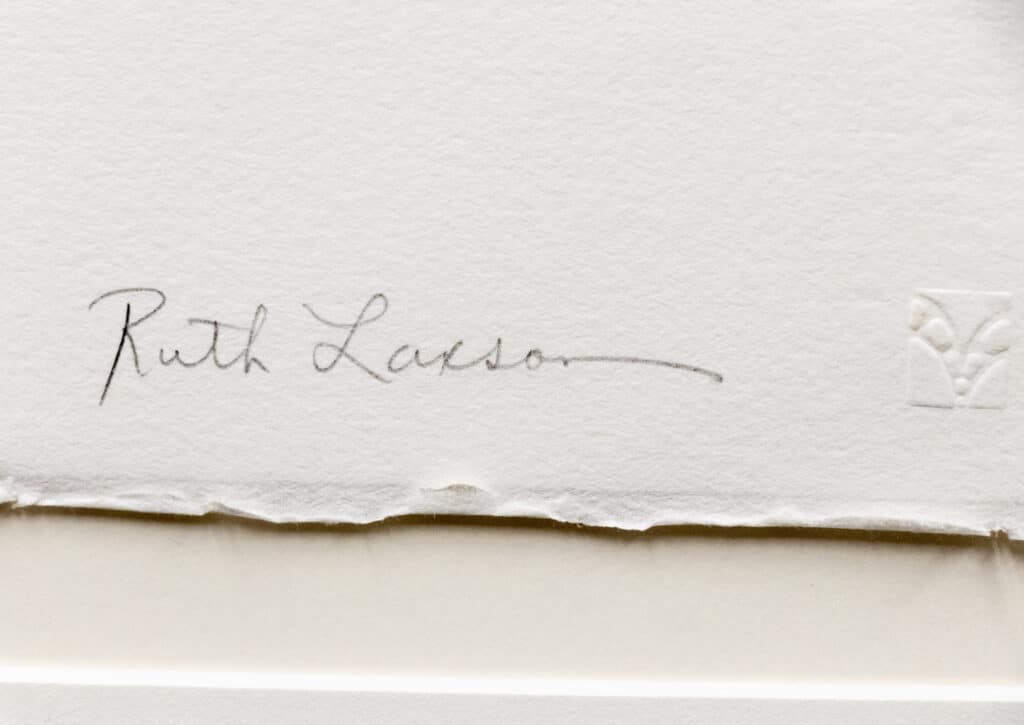 Ruth Laxson